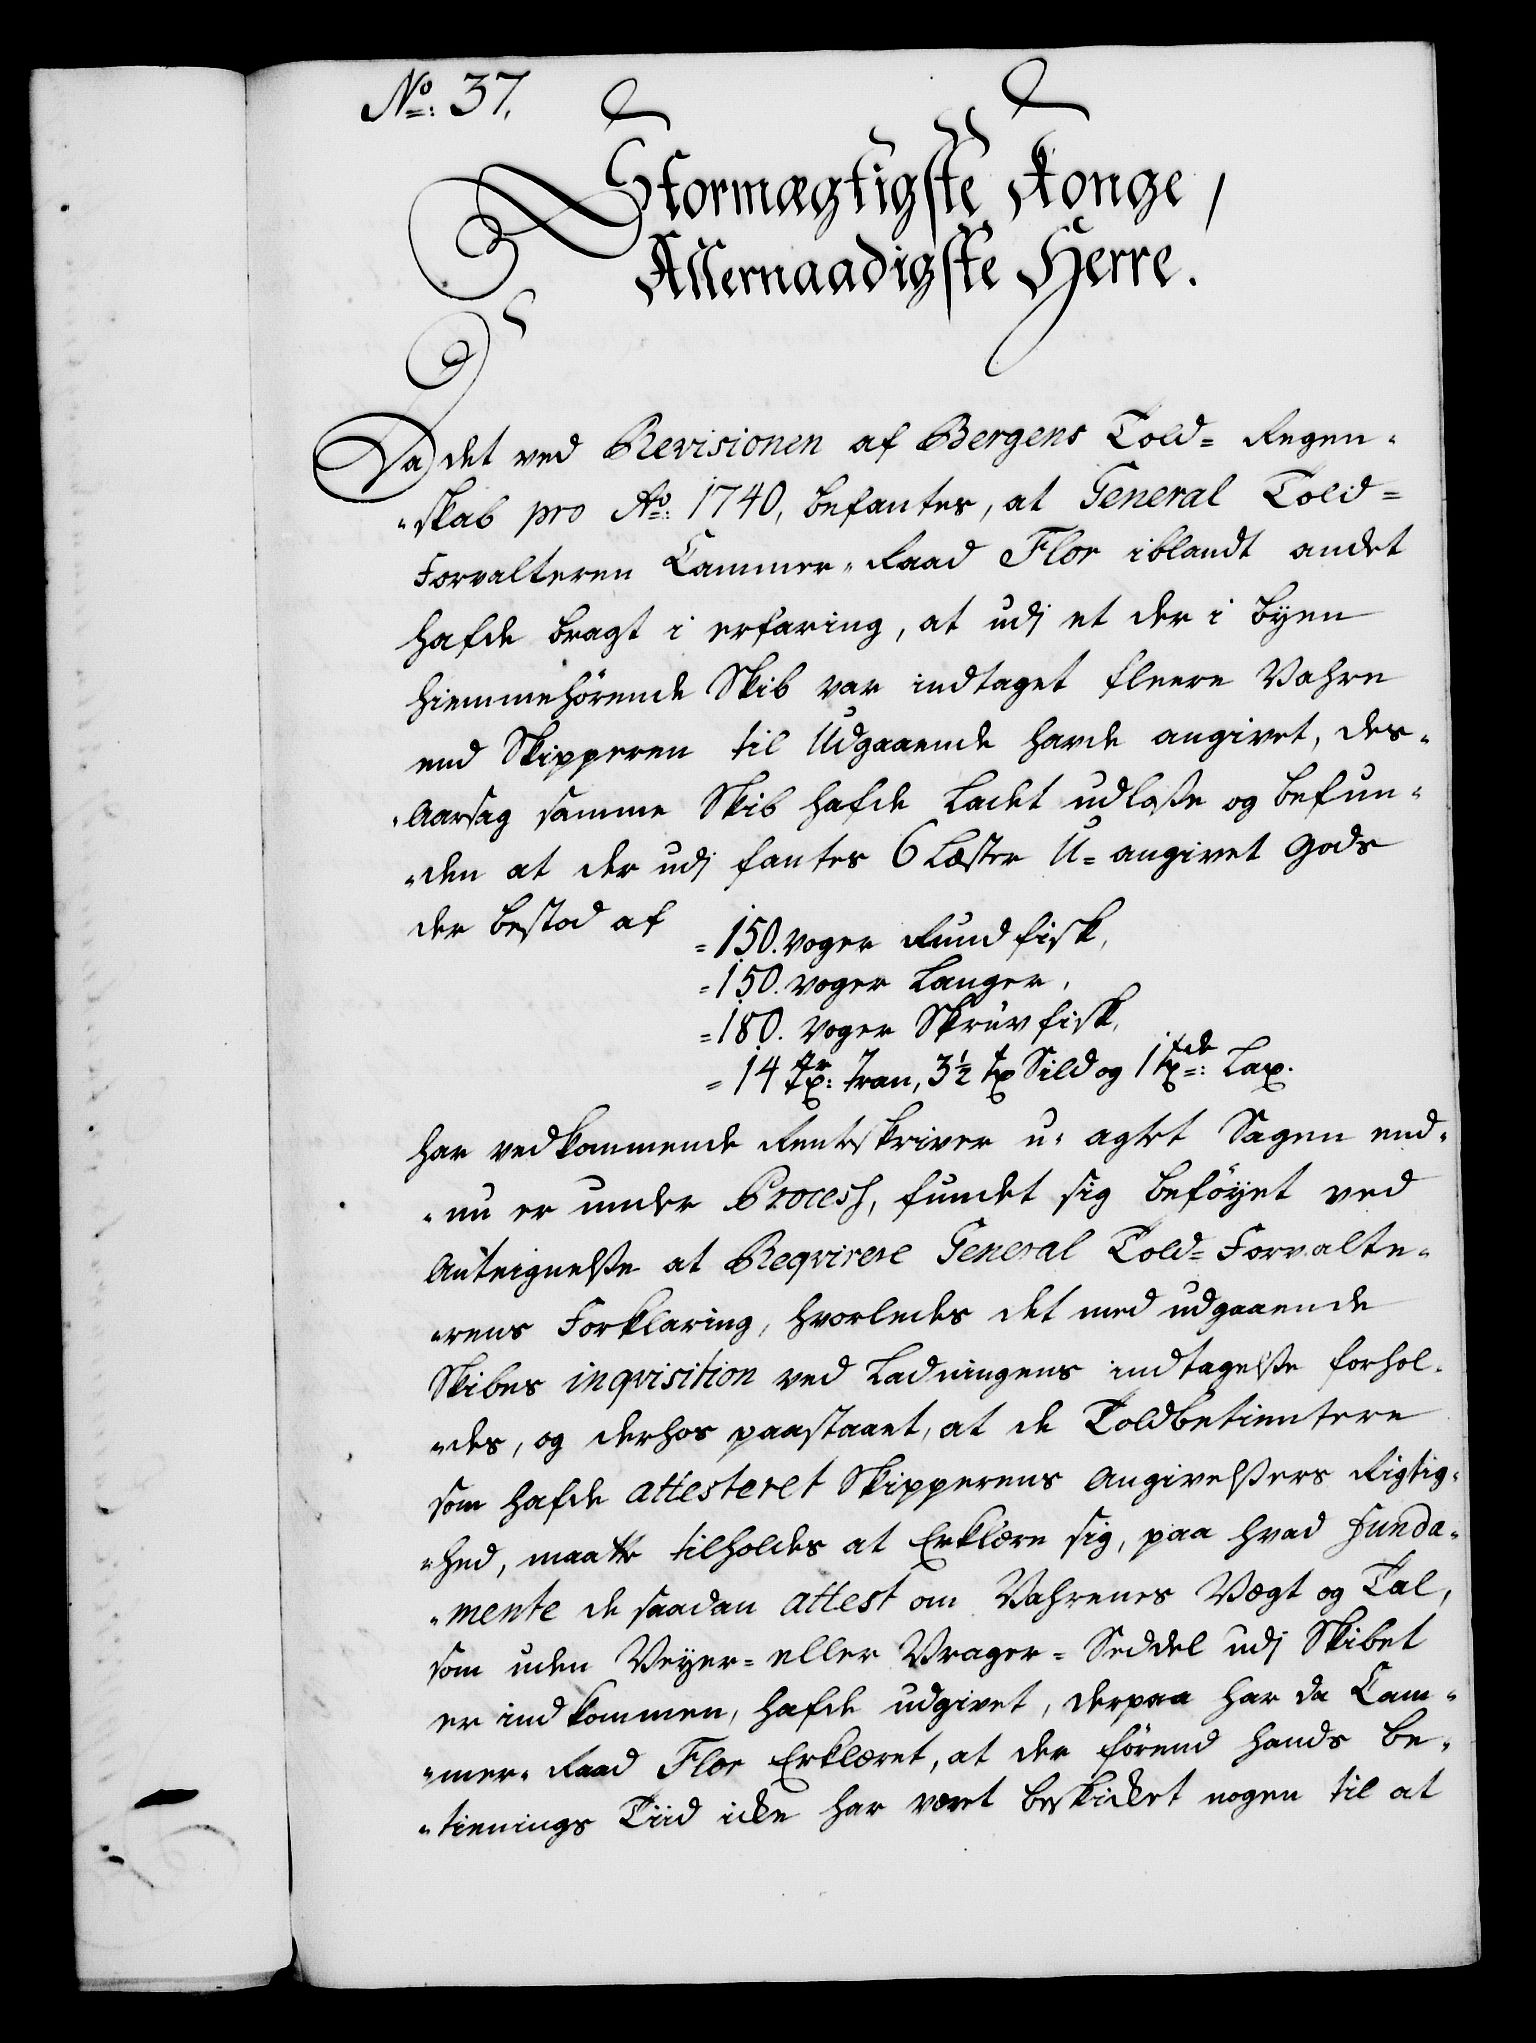 No: 37.
Stormægtigste Konge,
Allernaadigste Herre.
Da det ved Revisionen af Bergens Told= Regen-
-skab pro Ao: 1740, befantes, at General Told=
Forvalteren Cammer-Raad Flor iblandt andet
hafde bragt i erfaring, at udj et der i Byen
hiemmehörende Skib var indtaget fleere Vahre
end Skipperen til Udgaaende havde angivet, des-
-Aarsag samme Skib hafde ladet udlosse og befun-
-den at der udj fantes 6 Læster U=angivet Gods
der bestod af
=150. voger Rundfisk,
=150. voger Langer,
=180. voger Skruvfisk,
=14 tr: Tran, 3½ tr Sild og 1 fde tr: Lax.
har vedkommende Rentskriver u-agtet Sagen end-
-nu er under Process, fundet sig beföyet ved
Anteignelsse at Reqvirere General Told=Forvalte-
-rens Forklaring, hvorledes det med udgaaende
Skibes inqvisition ved Ladningens indtagelsse forhol-
-des, og derhos paastaaet, at de Toldbetientere
som hafde attesteret Skipperens Angivelssers Rigtig-
-hed, maatte tilholdes at Erklære sig, paa hvad Funda-
-mente de saadan attest om Vahrenes Vægt og Tal,
som uden Veyer= eller Vrager=Seddel udj Skibet
er indkommen, hafde udgivet, derpaa har da Cam-
-mer-Raad Flor Erklæret, at der förend hands be-
-tienings Tiid icke har været beskicket nogen til at